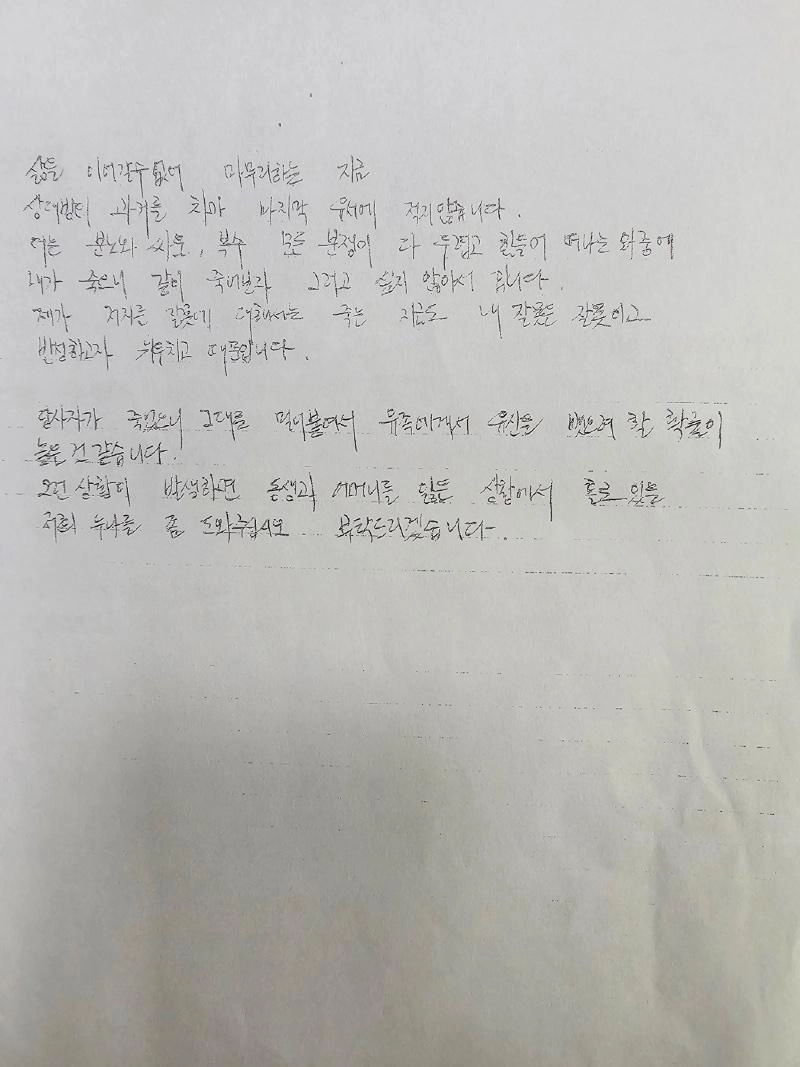 삶을 이어갈수 없어 마무리하는 지금
상대방의 과거를 차마 마지막 유서에 적지않습니다.
더는 분노와 싸움, 복수 모든 분쟁이 다 두렵고 힘들어 떠나는 와중에
내가 죽으니 같이 죽어보자 그러고 싶지 않아서 입니다.
제가 저지른 잘못에 대해서는 죽는 지금도 내 잘못은 잘못이고
반성하고자 뉘우치고 때문입니다.
당사자가 죽었으니 그대를 물어붙여서 유족에게서 유산을 뺏으려 할 확률이
높은 건 같습니다.
그런 상황이 발생하면 동생과 어머니를 잃은 상황에서 홀로 있을
저희 누나를 좀 도와주십시오 부탁드리겠습니다.